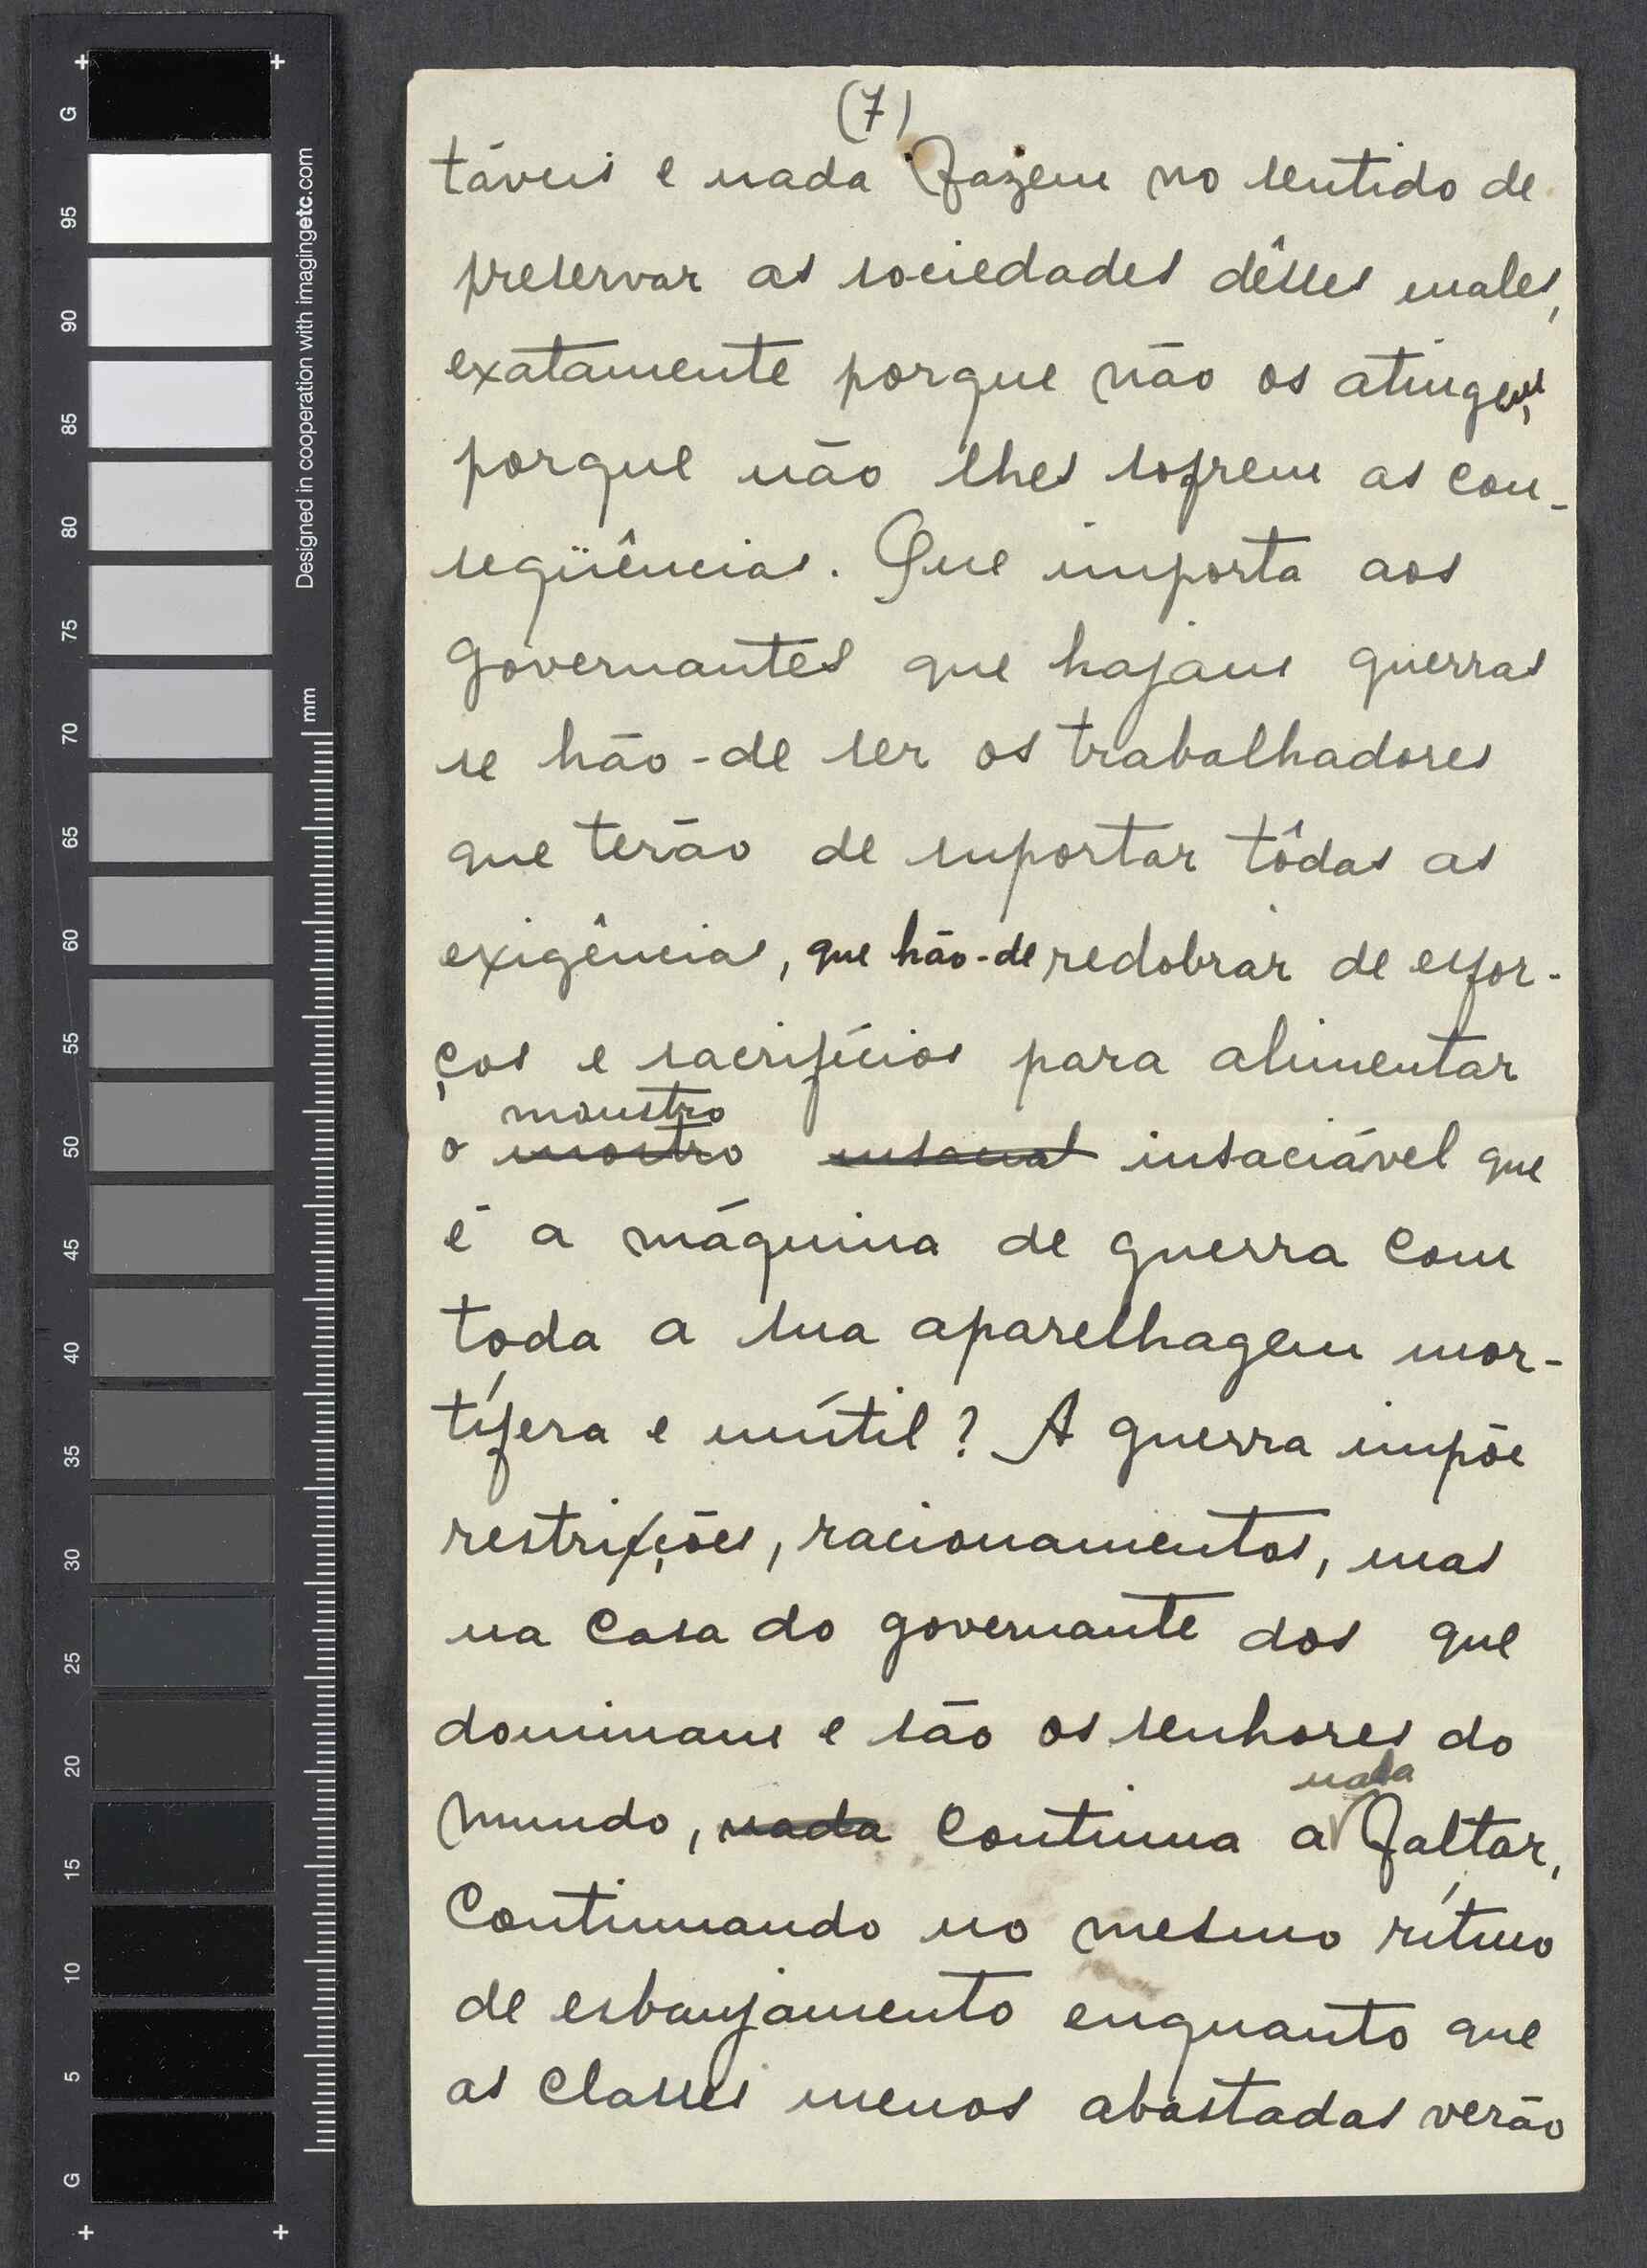 (7)
táveis e nada fazem no sentido de
preservar as sociedades dêsses males,
exatamente porque não os atingem,
porque não lhes sofrem as con-
seqüências. Que importa aos
governantes que hajam guerras
se hão-de ser os trabalhadores
que terão de suportar tôdas as
exigências, que hão-de redobrar de esfor-
ços e sacrifícios para alimentar
monstro
o mostro insaciável que
é a máquina de guerra com
toda a sua aparelhagem mor-
tífera e inútil? A guerra impõe
restrições, racionamentos, mas
na casa do governante dos que
dominam e são os senhores do
nada
mundo, nada continua a faltar,
continuando no mesmo rítmo
de esbanjamento enquanto que
as classes menos abastadas verão
G
95
90
85
80
75
70
65
60
55
50
45
40
35
30
25
20
15
10
5
G
Designed in cooperation with imagingetc.com
mm